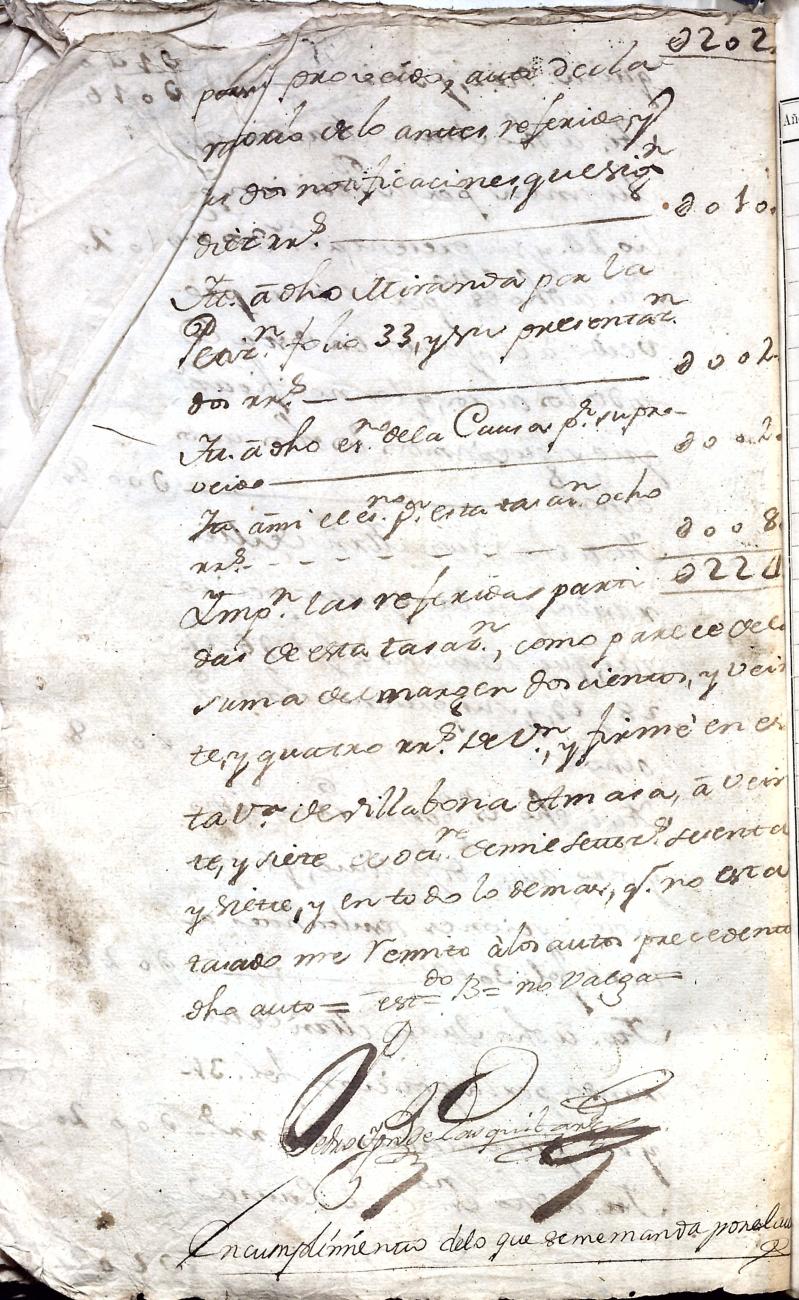 0202
proveido, auto decla
ratorio de lo antes referido, y
dos notificaciones, que sign
diez rr.s 0010.
Yt. a dho Miranda por la
Petiz.n folio 33, y su presentaz.n
dos rr.s 0002
Yt. a dho es.no dela Causa p.r su pro-
veido 0002.
Yt. a mi el es.no p.r esta tasaz.n ocho
rr.s 0008.
Ymp.n las referidas parti 0224
das de esta tasaz.n, como parece dela
suma del margen doscientos, y vein
te, y quatro rr.s de V.n, y firmé en es
ta V.a de Villabona Amasa, á vein
te, y siete de oct.re de mil setez.s setenta
y siete, y en todo lo demas, q.e no esta
tasado me remito à los autos precedent
dho auto = est.do B = no valga =
Pedro
En cumplimiento delo que se me manda por el au